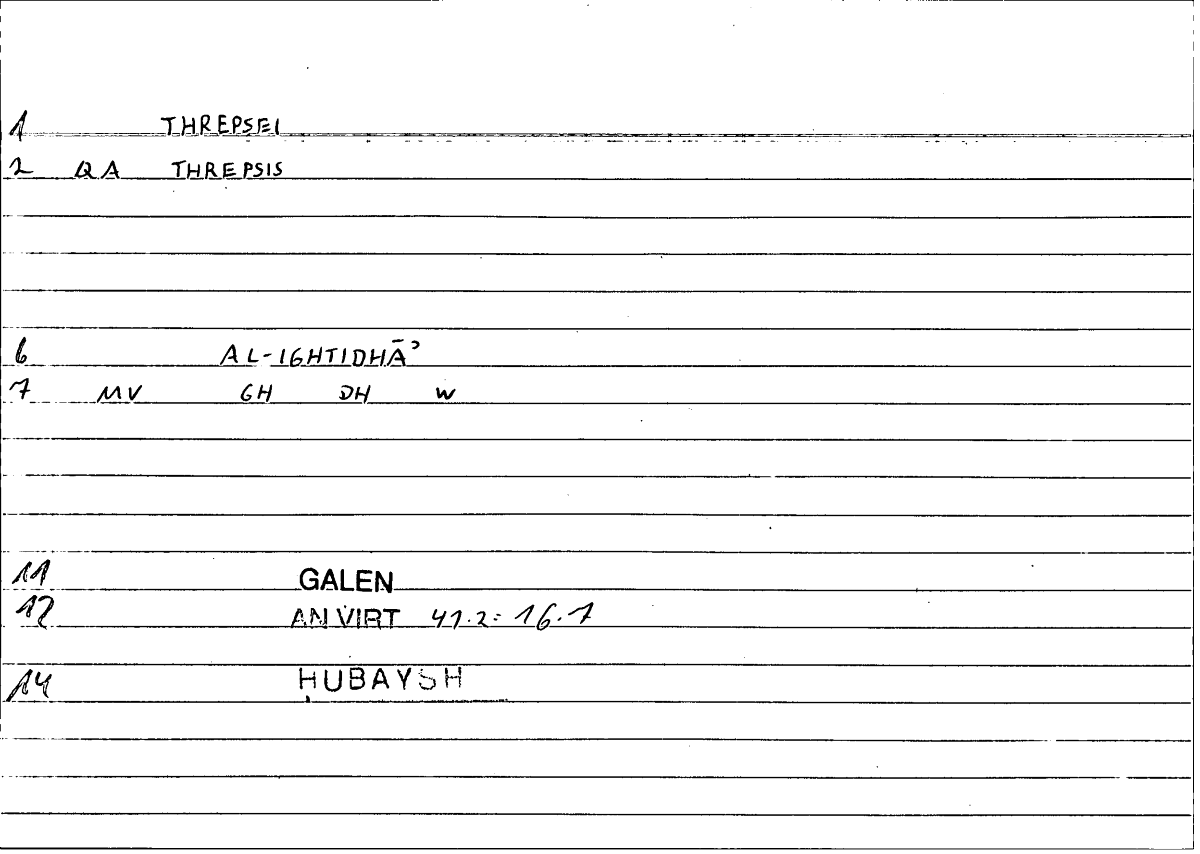 1 THREPSEI
2 QA THREPSIS
6 AL-IGHTIDHĀʾ
7 MV GH DH W
11 GALEN
12 AN VIRT 41.2: 16.7
14 ḤUBAYSH